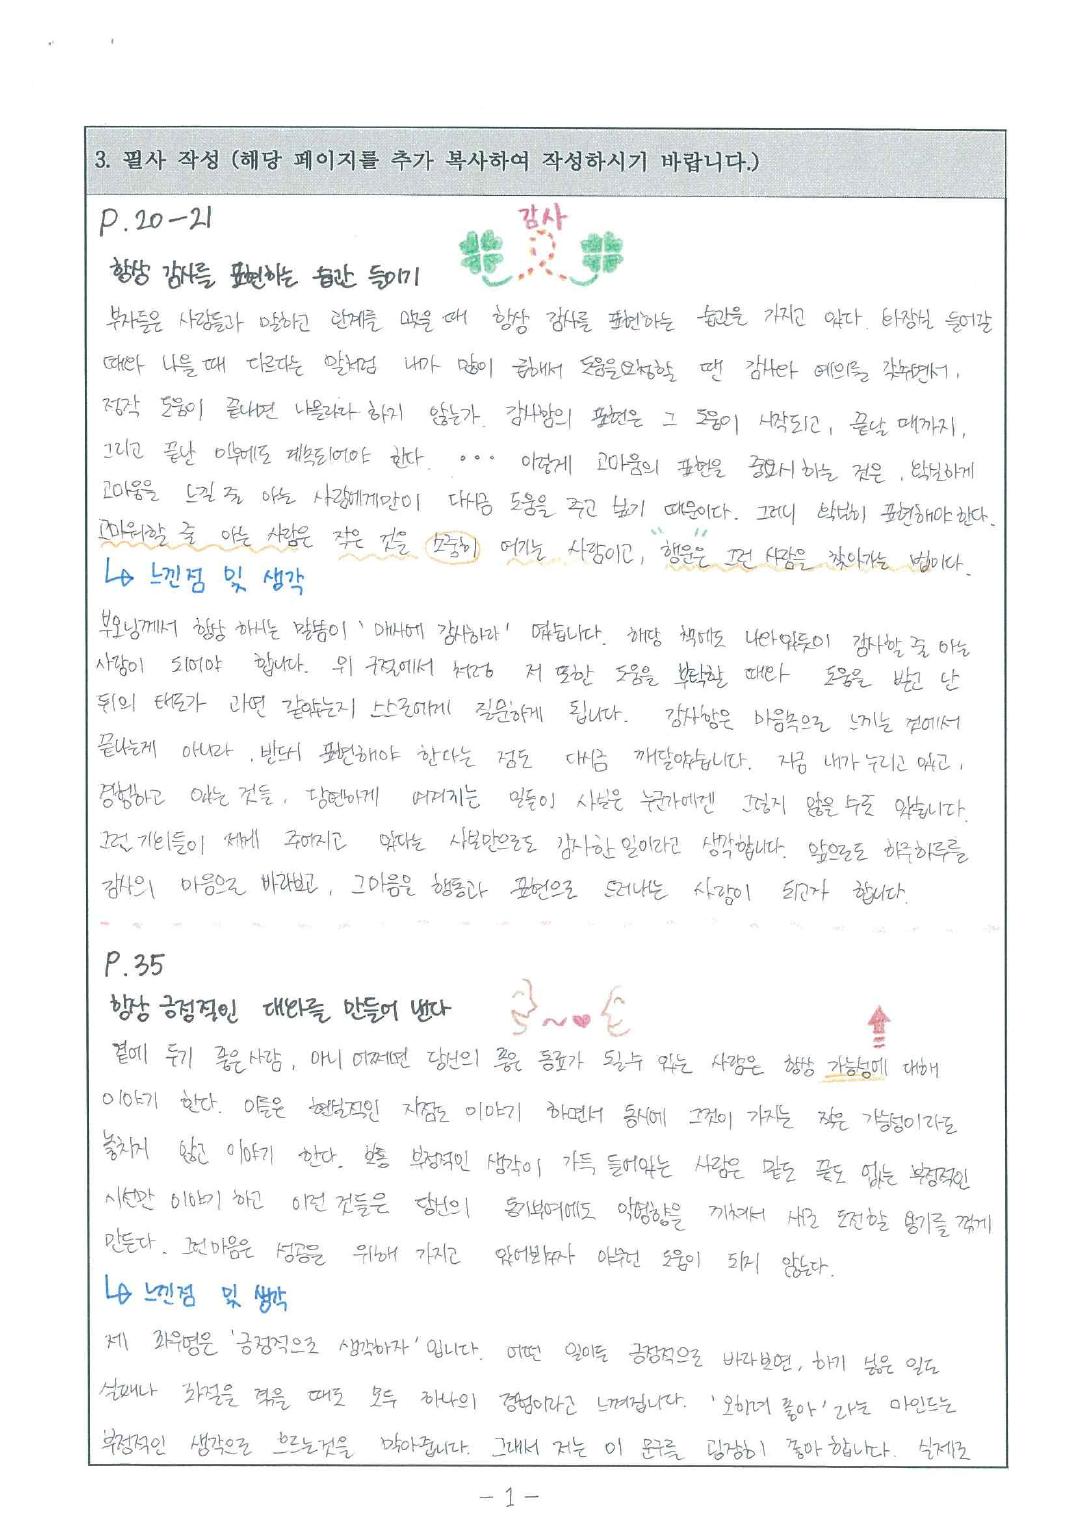 3. 필사 작성 (해당 페이지를 추가 복사하여 작성하시기 바랍니다.)
P.20-21
감사
항상 감사를 표현하는 습관 들이기
부자들은 사람들과 말하고 관계를 맺을 때 항상 감사를 표현하는 습관을 가지고 있다. 화장실 들어갈
때와 나올 때 다르다는 말처럼 내가 많이 급해서 도움을요청할 땐 감사와 예의를 갖추면서,
정작 도움이 끝내면 나몰라라 하지 않는가. 감사함의 표현은 그 도움이 시작되고, 끝날 때까지,
그리고 끝난 이후에도 계속되어야 한다. ... 이렇게 고마움의 표현을 중요시 하는 것은, 확실하게
고마움을 느낄 줄 아는 사람에게만이 다시금 도움을 주고 싶기 때문이다. 그러니 확실히 표현해야한다.
고마워할 줄 아는 사람은 작은 것을 소중히 여기는 사람이고, "행운"은 그런 사람을 찾아가는 법이다.
↳ 느낀점 및 생각
부모님께서 항상 하시는 말씀이 '매사에 감사하라' 였습니다. 해당 책에도 나와있듯이 감사할 줄 아는
사람이 되어야 합니다. 위 구절에서 처럼 저 또한 도움을 부탁할 때와 도움을 받고 난
뒤의 태도가 과연 같았는지 스스로에게 질문하게 됩니다. 감사함은 마음속으로 느끼는 것에서
끝나는게 아니라, 반드시 표현해야 한다는 점도 다시금 깨달았습니다. 지금 내가 누리고 있고,
경험하고 있는 것들, 당연하게 여겨지는 일들이 사실은 누군가에겐 그렇지 않을 수도 있습니다.
그런 기회들이 제게 주어지고 있다는 사실만으로도 감사한 일이라고 생각합니다. 앞으로도 하루하루를
감사의 마음으로 바라보고, 그마음을 행동과 표현으로 드러내는 사람이 되고자 합니다.
P.35
항상 긍정적인 대화를 만들어 낸다
곁에 두기 좋은사람, 아니 어쩌면 당신의 좋은 동료가 될수 있는 사람은 항상 가능성에 대해
이야기 한다. 이들은 현실적인 지점도 이야기 하면서 동시에 그것이 가지는 작은 가능성이라도
놓치지 않고 이야기 한다. 보통 부정적인 생각이 가득 들어있는 사람은 밑도 끝도 없는 부정적인
시선만 이야기 하고 이런 것들은 당신의 동기부여에도 악영향을 끼쳐서 새로 도전할 용기를 꺾게
만든다. 그런마음은 성공을 위해 가지고 있어봤자 아무런 도움이 되지 않는다.
↳ 느낀점 및 생각
제 좌우명은 '긍정적으로 생각하자' 입니다. 어떤 일이든 긍정적으로 바라보면, 하기 싫은 일도
실패나 좌절을 겪을 때도 모두 하나의 경험이라고 느껴집니다. '오히려 좋아' 라는 마인드는
부정적인 생각으로 흐르는것을 막아줍니다. 그래서 저는 이 문구를 굉장히 좋아 합니다. 실제로
- 1 -